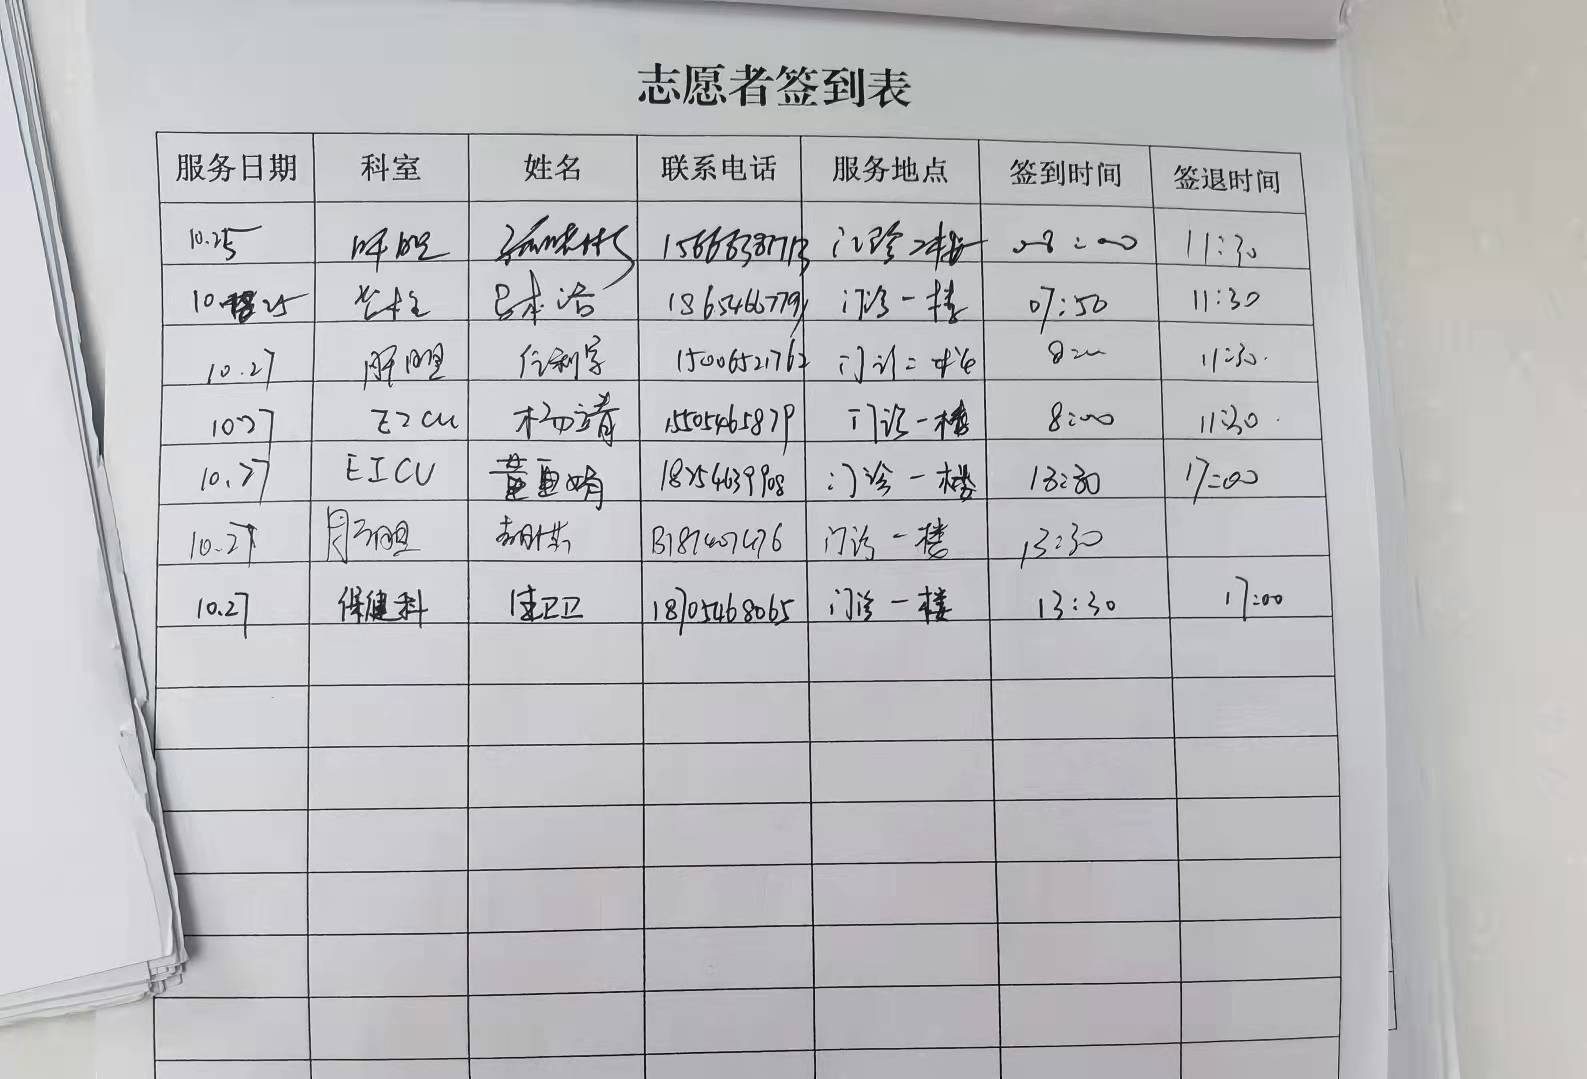 志愿者签到表
服务日期 科室 姓名 联系电话 服务地点 签到时间 签退时间
10.25 肝胆 15666381713 门诊二楼 08:00 11:30
10.25 吕本浩 门诊一楼 07:50 11:30
10.27 肝胆 任利字 15006521762 门诊二楼 8:00 11:30.
10.27 EICU 杨靖 15505465879 门诊一楼 8:00 11:30.
10.27 EICU 董亚娟 18254639908 门诊一楼 13:30 17:00
10.27 肝胆 胡 门诊一楼 13:30
10.27 保健科 佳卫卫 18705468065 门诊一楼 13:30 17:00